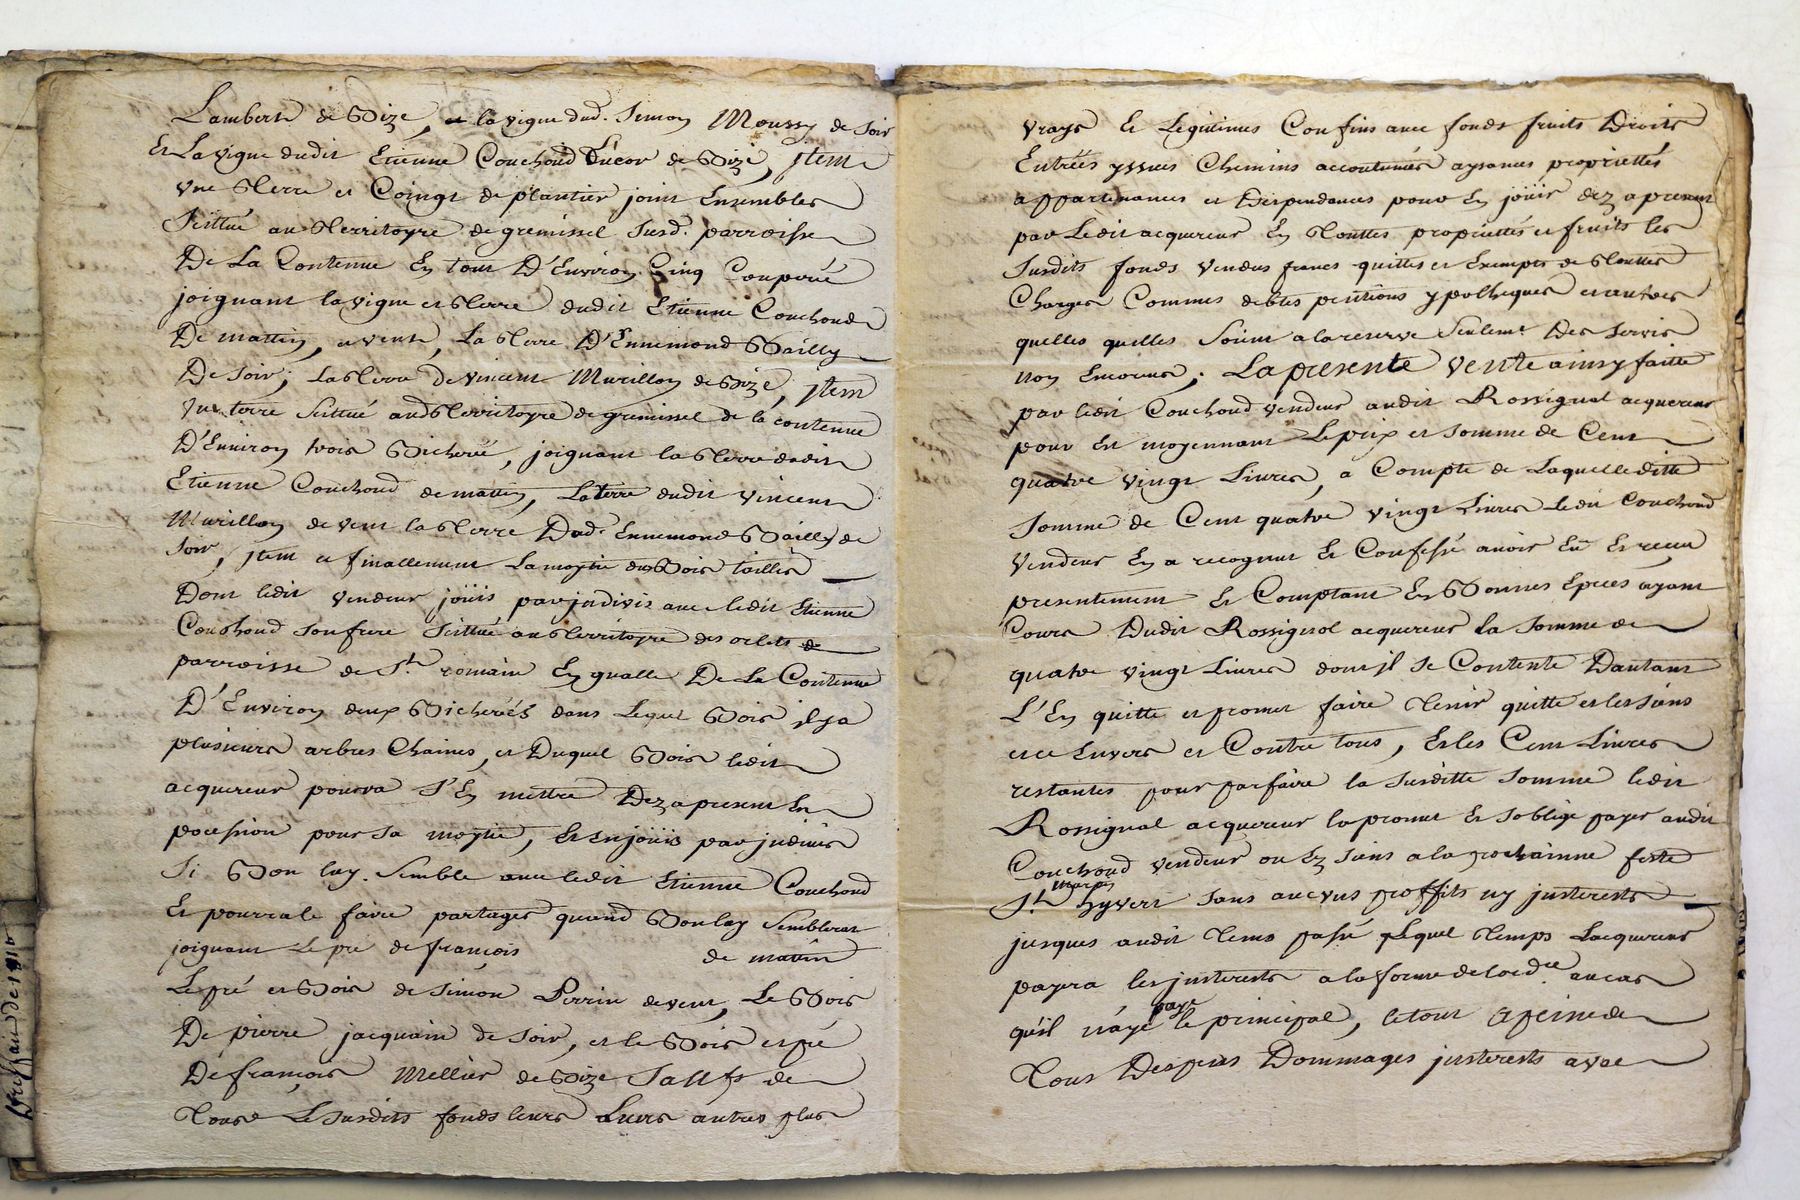 Lambert de Bize, et la vigne dud. Simon Moussy de soir
Et La vigne dudit Etienne Couchoud de Bize, Jtem
vne Terre et Coingt de plantier joint Ensembles
Scittué au Territoyre de gremissel susd. parroisse
De La Contenue En tout D'Environ Cinq Couperée
joignant la vigne et Terre dudit Etienne Couchoud
De mattin, et vent, La Terre D'Ennemond Bailly
De soir, La Terre de vincent Murillon de Bize, Jtem
vne terre scittué aud Territoyre de gremissel de la contenue
D'Environ trois Bicherée, joignant la Terre dudit
Etienne Couchoud de mattin, La terre dudit vincent
Murillon de vent la Terre Dud. Ennemond Bailly de
soir, jtem et finallement La moytié du Bois taillis
Dont ledit vendeur joüis par jndivis auec ledit Etienne
Couchoud son frere scittué au Territoyre des orlets
parroisse de St. romain En gualle De La Contenue
D'Environ deux Bicherées dans Lequel Bois il y a
plusieurs arbres Chaines, et Duquel Bois ledit
acquereur pourra S'En mettre Dez a present En
pocession pour sa moytié, Et En joüir par jndivis
Si Bon luy. Semble auec ledit Etienne Couchoud
Et pourra le faire partager quand Bon luy Semblerat
joignant Le pré de françois de matin
Le pré et Bois de Simon Perrin de vent, Le Bois
De pierre jacquain de Soir, et le Bois et pré
De françois Mellier de Bize de
Tous Le susdits fonds leurs autres plus
vrays Et Legitimes Confins auec fonds fruits Droits
Entrées yssues Chemins accoutumés aysances proprietés
appartenances et Dependances pour En joüir dez a present
par Ledit acquereur En Touttes proprietés et fruits les
susdits fonds vendus francs quittes et Exempts de Touttes
Charges Commes debtes pentions ypotheques et autres
quelles quelles Soient a la reserve Seulemt Des servis
non Encorus; La presente vente ainsy faitte
par ledit Couchoud vendeur audit Rossignol acquereur
pour Et moyennant Le prix et somme de Cent
quatre vingt Livres, a Compte de Laquelle ditte
somme de Cent quatre vingt Livres Ledit Couchoud
vendeur En a recognut Et Confessé auoir Eü Et receu
presentement Et Comptant En Bonnes Epeces ayant
Cours Dudit Rossignol acquereur la somme de
quatre vingt Livres dont il se Contente Dautant
L'En quitte et promet faire Tenir quitte et les siens
et ce Envers et Contre tous, Et les Cent Livres
restantes pour parfaire la susditte somme ledit
Rossignol acquereur la promet Et s'oblige payer audit
Couchoud vendeur ou Ez siens a la prochainne feste
St. martin hyvert sans aucuns proffits ny justerests
jusques audit Tems passé Lequel Temps Lacquereur
payera les justerests a la forme de lord.ce au cas
qu'il n'aye payé le principal, le tout a peine de
Tous Depens Dommages justerests avec